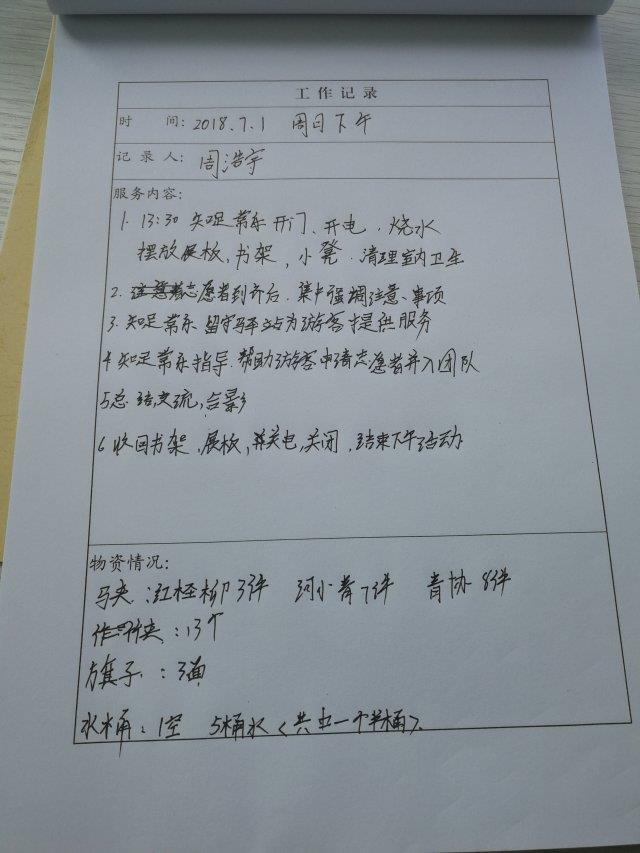 工作记录
时 间: 2018.7.1 周日下午
记录人: 周浩宇
服务内容:
1. 13:30 知足常乐开门、开电、烧水
摆放展板,书架,小凳.清理室内卫生
2. 志愿者到齐后.集中强调注意事项
3. 知足常乐留守驿站为游客提供服务
4 知足常乐指导.帮助游客申请志愿者并入团队
5总结交流,合影
6 收回书架,展板,并关电,关闭,结束下午活动
物资情况:
马夹:红柽柳3件 河小青7件 青协8件
:13个
旗子:3面
水桶:1空 5桶水(共中一个半桶).